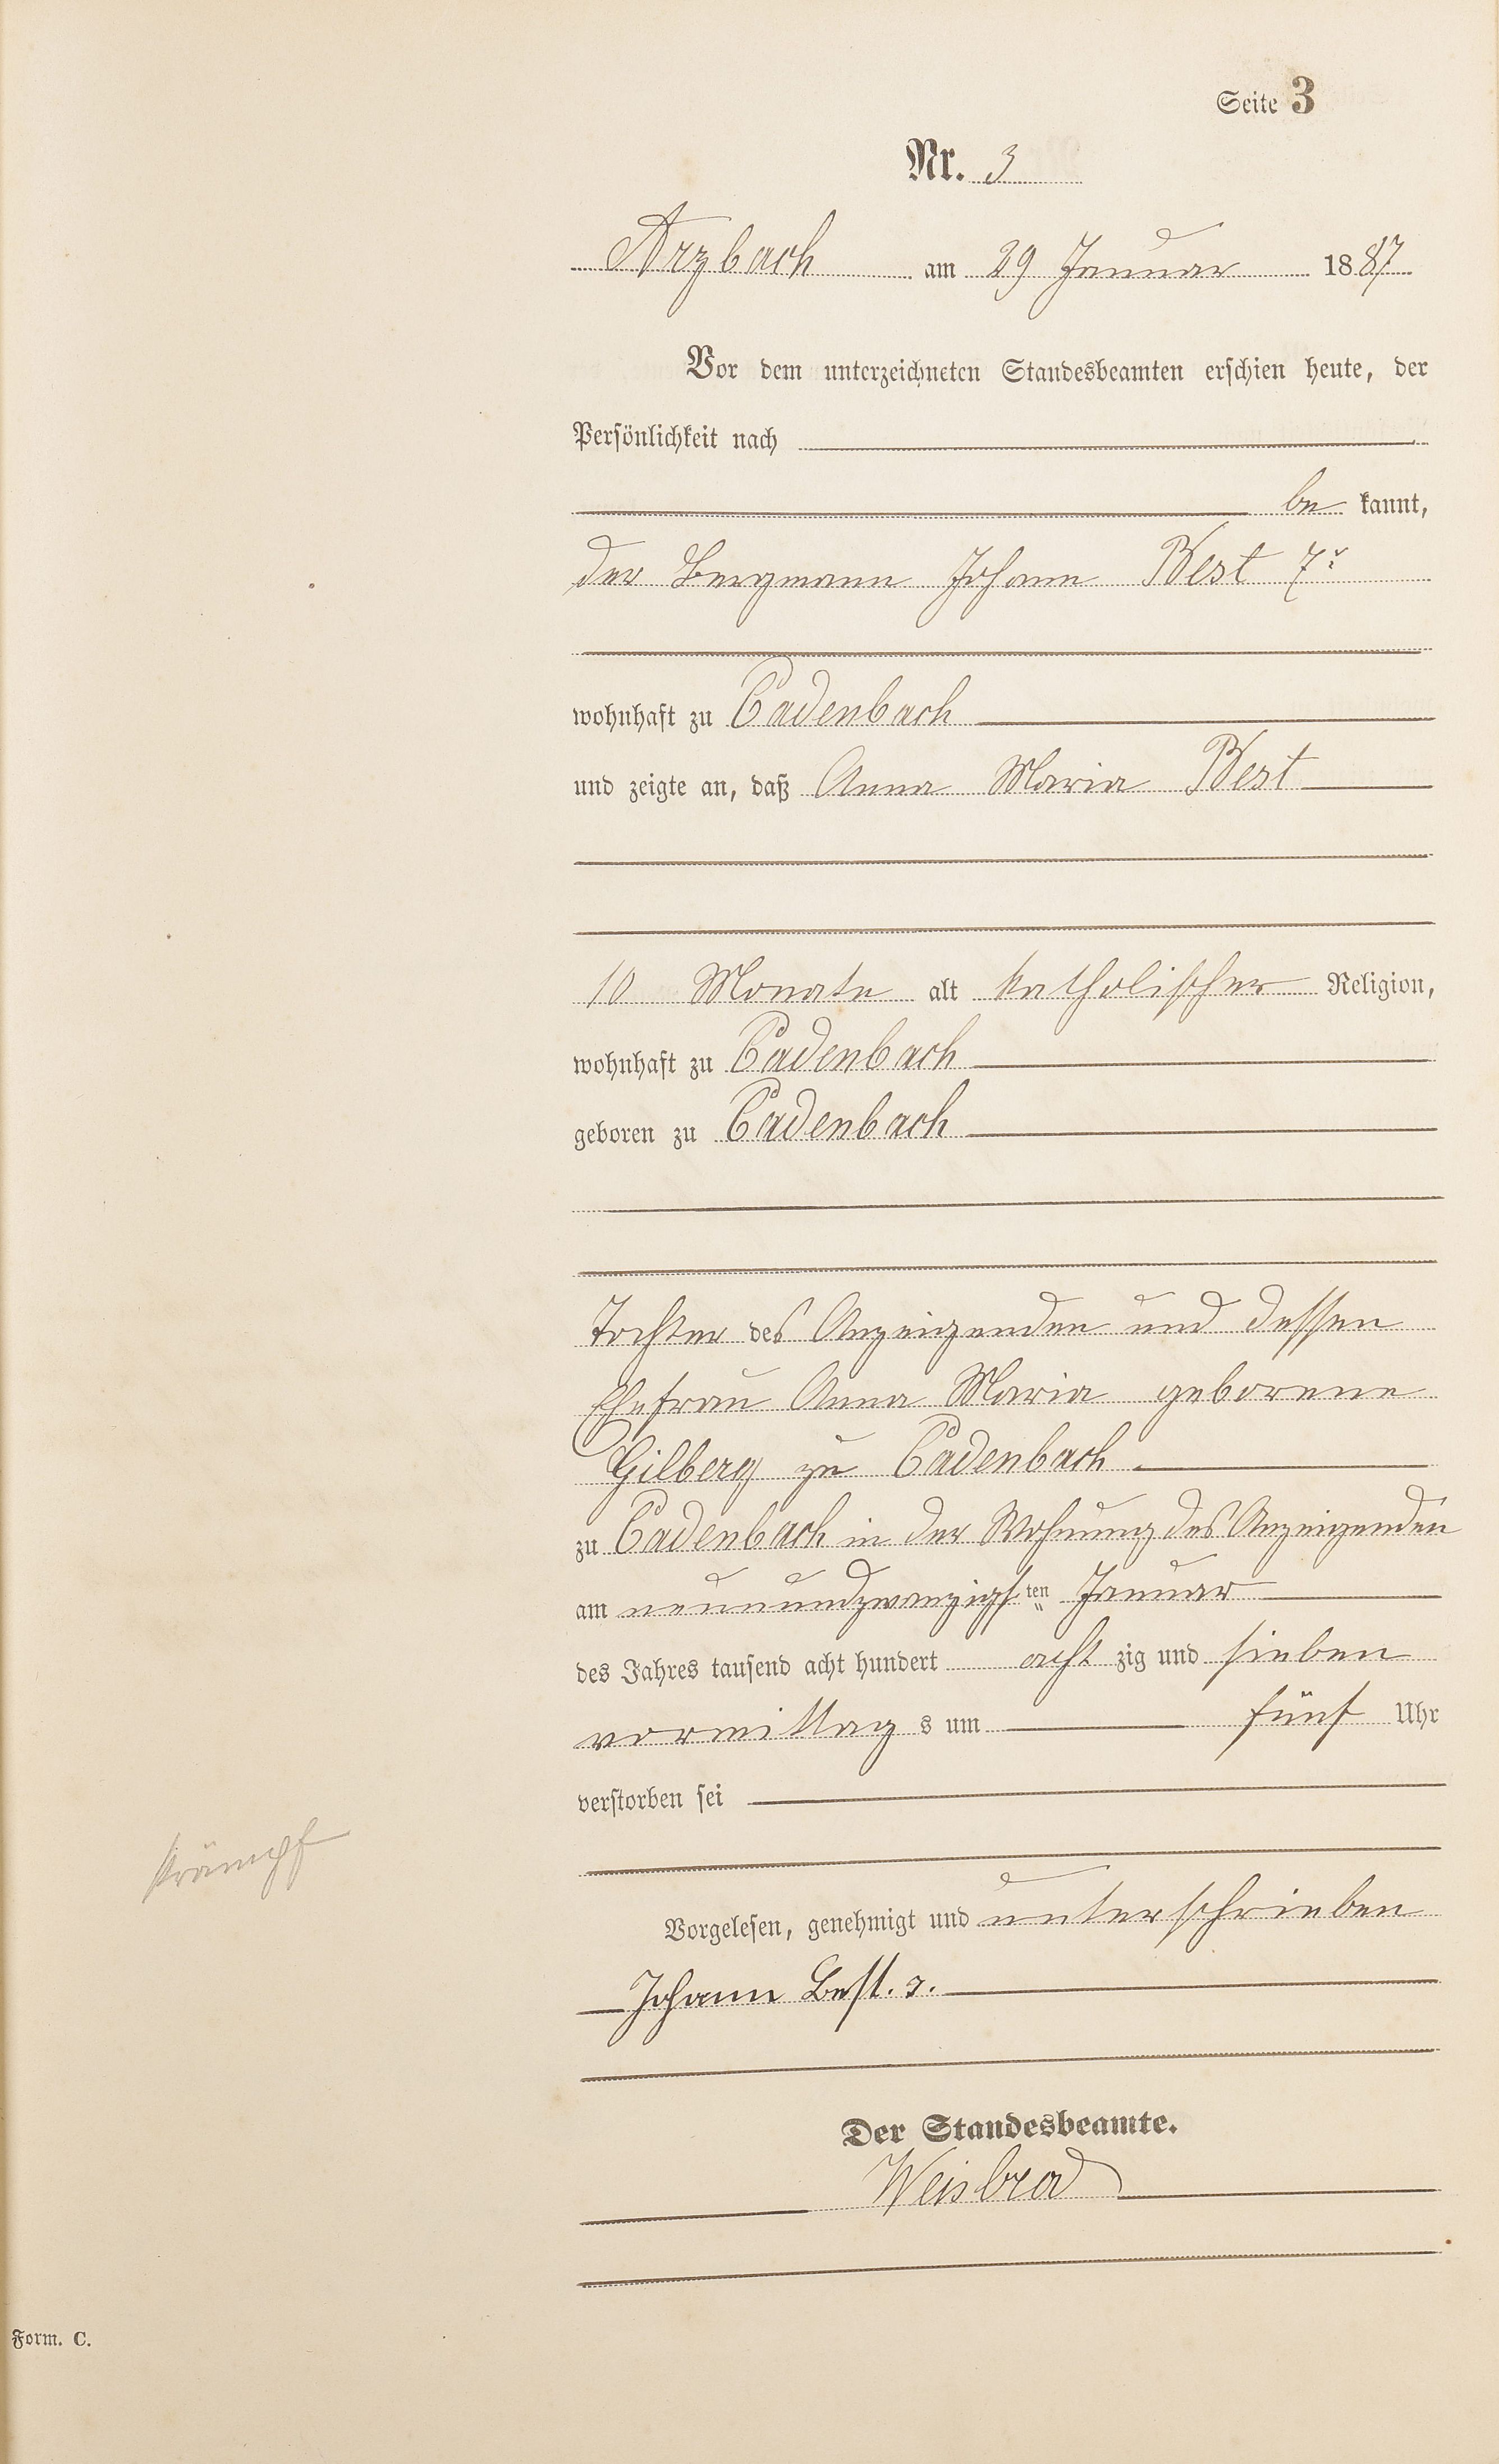 Seite 3
Nr. 3
Arzbach am 29 Januar 1887
Vor dem unterzeichneten Standesbeamten erschien heute, der
Persönlichkeit nach
be kannt,
der Bergmann Johann Best 7r
wohnhaft zu Cadenbach
und zeigte an, daß Anna Maria Best
10 Monate alt katholischer Religion,
wohnhaft zu Cadenbach
geboren zu Cadenbach
Tochter des Anzeigenden und dessen
Ehefrau Anna Maria geborene
Gilberg zu Cadenbach
zu Cadenbach in der Wohnung des Anzeigenden
am neunundzwanzigsten Januar
des Jahres tausend acht hundert acht zig und sieben
vormittag s um fünf Uhr
verstorben sei
Krämpf
Vorgelesen, genehmigt und unterschrieben
Johann Best.
Der Standesbeamte.
Weisbrod
Form. C.